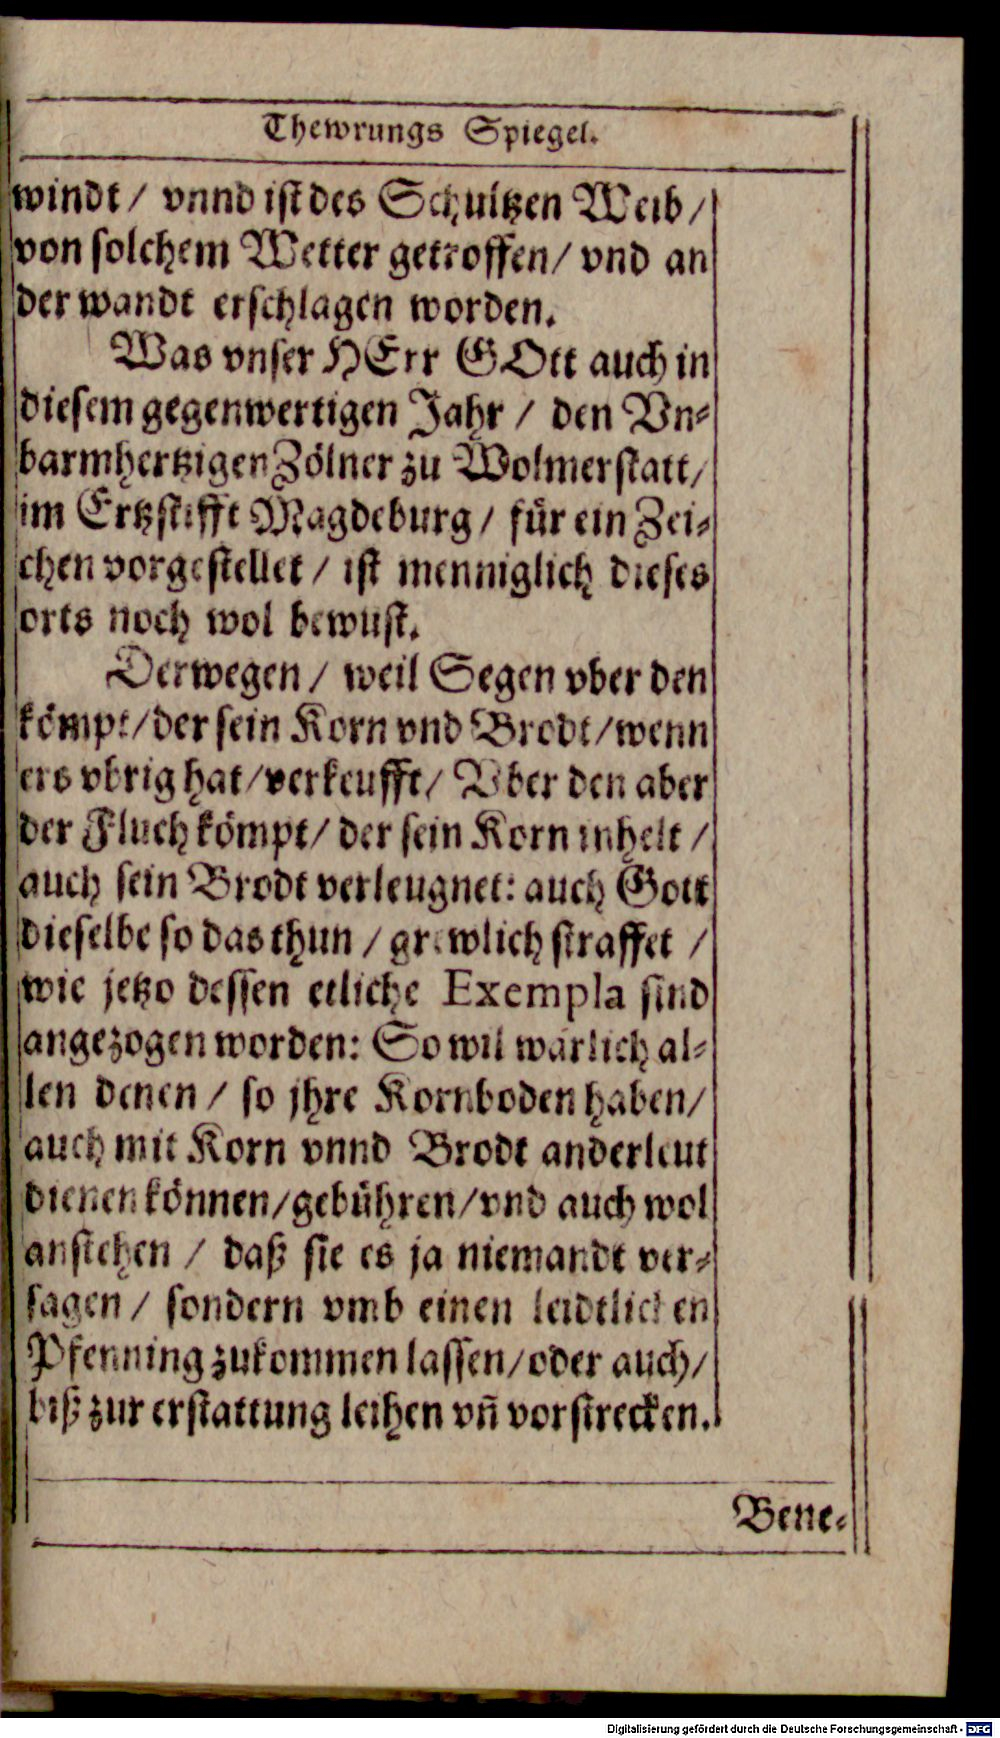 Thewrungs Spiegel.
windt / vnnd ist des Schultzen Weib /
von solchem Wetter getroffen / vnd an
der wandt erschlagen worden.
Was vnser HErr GOtt auch in
diesem gegenwertigen Jahr / den Vn-
barmhertzigen Zölner zu Wolmerstatt /
im Ertzstifft Magdeburg / für ein Zei-
chen vorgestellet / ist menniglich dieses
orts noch wol bewust.
Derwegen / weil Segen vber den
kömpt / der sein Korn vnd Brodt / wenn
ers vbrig hat / verkeufft / Vber den aber
der Fluch kömpt / der sein Korn inhelt /
auch sein Brodt verleugnet: auch Gott
dieselbe so das thun / grewlich straffet /
wie jetzo dessen etliche Exempla sind
angezogen worden: So wil warlich al-
len denen / so jhre Kornboden haben /
auch mit Korn vnnd Brodt anderleut
dienen können / gebühren / vnd auch wol
anstehen / daß sie es ja niemandt ver-
sagen / sondern vmb einen leidtlichen
Pfenning zukommen lassen / oder auch /
biß zur erstattung leihen vñ vorstrecken.
Bene-
Digitalisierung gefördert durch die Deutsche Forschungsgemeinschaft - DFG